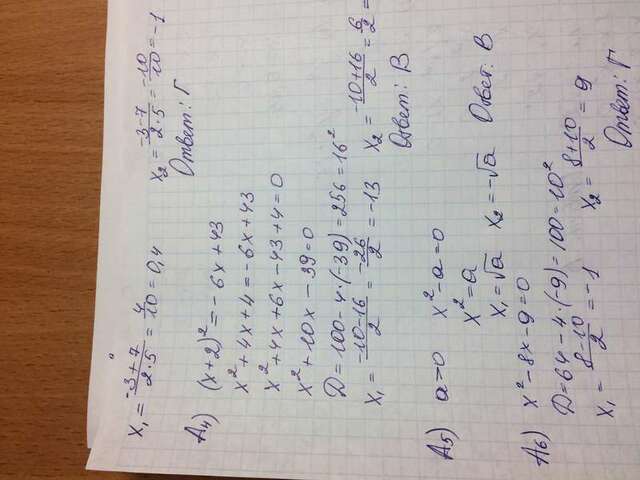 x₁ = (-3+7)/(2·5) = 4/10 = 0,4    x₂ = (-3-7)/(2·5) = -10/10 = -1
Ответ: Г
А4) (x+2)² = -6x+43
x²+4x+4 = -6x+43
x²+4x+6x-43+4=0
x²+10x-39=0
D=100-4·(-39)=256=16²
x₁ = (-10-16)/2 = -26/2 = -13    x₂ = (-10+16)/2 = 6/2 =
Ответ: В
А5) a>0    x²-a=0
x²=a
x₁=√a    x₂=-√a    Ответ: В
А6) x²-8x-9=0
D=64-4·(-9)=100=10²
x₁ = (8-10)/2 = -1    x₂ = (8+10)/2 = 9
Ответ: Г